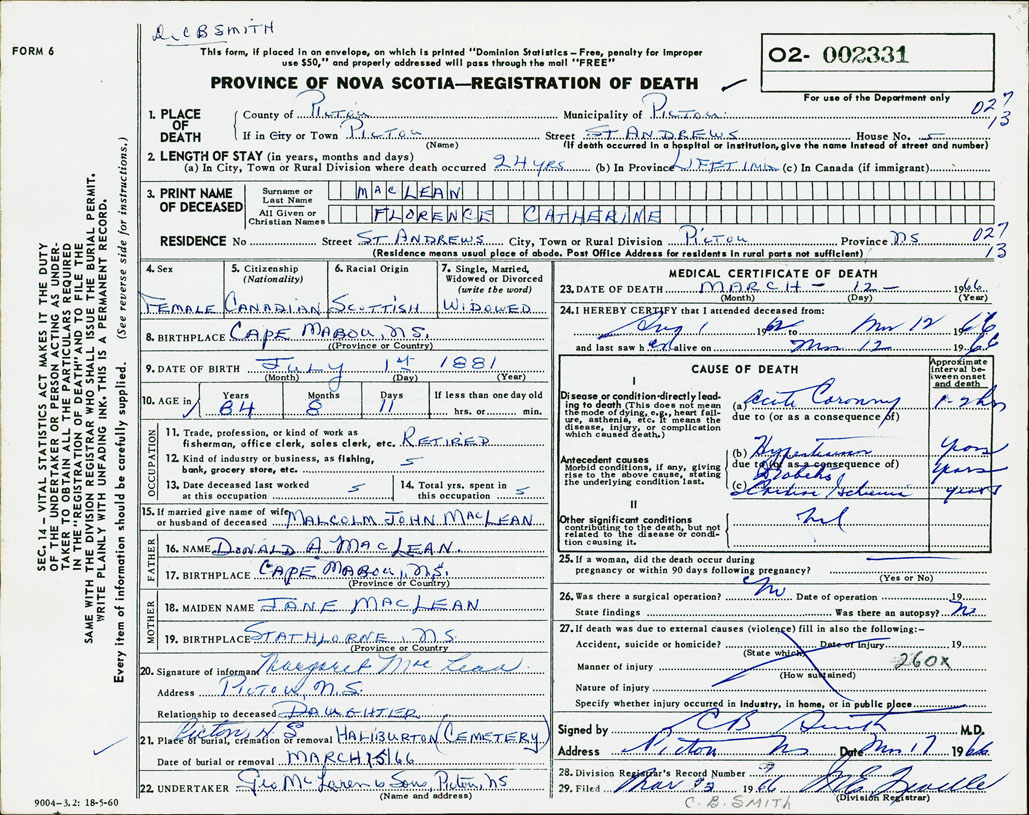 Dr. C B SMITH
FORM 6
This form, if placed in an envelope, on which is printed "Dominion Statistics – Free, penalty for improper
use $50," and properly addressed will pass through the mail "FREE"
PROVINCE OF NOVA SCOTIA—REGISTRATION OF DEATH ✓
02- 002331
For use of the Department only
027
13
1. PLACE OF DEATH
County of PICTOU Municipality of PICTOU.
If in City or Town PICTOU Street ST ANDREWS House No. 5
(Name) (If death occurred in a hospital or institution, give the name instead of street and number)
2. LENGTH OF STAY (in years, months and days)
(a) In City, Town or Rural Division where death occurred 24 YRS (b) In Province LIFETIME (c) In Canada (if immigrant)
3. PRINT NAME OF DECEASED
Surname or Last Name MACLEAN
All Given or Christian Names FLORENCE CATHERINE
RESIDENCE No Street ST ANDREWS City, Town or Rural Division PICTOU Province NS
027
13
(Residence means usual place of abode. Post Office Address for residents in rural parts not sufficient)
4. Sex FEMALE
5. Citizenship (Nationality) CANADIAN
6. Racial Origin SCOTTISH
7. Single, Married, Widowed or Divorced (write the word) WIDOWED
8. BIRTHPLACE CAPE MABOU, NS.
(Province or Country)
9. DATE OF BIRTH JULY 1st 1881
(Month) (Day) (Year)
10. AGE in Years 84 Months 8 Days 11 If less than one day old
hrs. or min.
OCCUPATION
11. Trade, profession, or kind of work as
fisherman, office clerk, sales clerk, etc. RETIRED
12. Kind of industry or business, as fishing,
bank, grocery store, etc.
13. Date deceased last worked
at this occupation
14. Total yrs. spent in
this occupation
15. If married give name of wife
or husband of deceased MALCOLM JOHN MACLEAN
FATHER
16. NAME DONALD A. MACLEAN.
17. BIRTHPLACE CAPE MABOU, NS.
(Province or Country)
MOTHER
18. MAIDEN NAME JANE MACLEAN
19. BIRTHPLACE STATHLORNE, NS
(Province or Country
20. Signature of informant Margaret MacLean
Address PICTOU, N.S.
Relationship to deceased DAUGHTER
Pictou, N.S
21. Place of burial, cremation or removal HALIBURTON (CEMETERY)
Date of burial or removal MARCH 15/66
22. UNDERTAKER Geo McLaren & Sons, Pictou, NS
(Name and address)
9004–3.2: 18-5-60
MEDICAL CERTIFICATE OF DEATH
23. DATE OF DEATH MARCH – 12 – 1966
(Month) (Day) (Year)
24. I HEREBY CERTIFY that I attended deceased from:
Aug 1 1962 to Mar 12 1966
and last saw her alive on Mar 12 1966
CAUSE OF DEATH
Approximate interval between onset and death
I
Disease or condition directly leading to death (This does not mean the mode of dying, e.g., heart failure, asthenia, etc. It means the disease, injury, or complication which caused death.)
(a) Acute Coronary 1-2 hrs
due to (or as a consequence of)
Antecedent causes
Morbid conditions, if any, giving rise to the above cause, stating the underlying condition last.
(b) Hypertension years
due to (or as a consequence of)
Diabetes years
(c) Cardiac Ischemia years
II
Other significant conditions
contributing to the death, but not related to the disease or condition causing it.
nil
25. If a woman, did the death occur during
pregnancy or within 90 days following pregnancy?
(Yes or No)
26. Was there a surgical operation? No Date of operation 19
State findings Was there an autopsy? No
27. If death was due to external causes (violence) fill in also the following:–
Accident, suicide or homicide? Date of injury 19
(State which)
Manner of injury 260x
(How sustained)
Nature of injury
Specify whether injury occurred in industry, in home, or in public place
Signed by C B Smith M.D.
Address Pictou NS Date Mar 17 1966
28. Division Registrar's Record Number 9
29. Filed Mar 22 1966
(Division Registrar)
C. B. SMITH
SEC. 14 – VITAL STATISTICS ACT MAKES IT THE DUTY
OF THE UNDERTAKER OR PERSON ACTING AS UNDER-
TAKER TO OBTAIN ALL THE PARTICULARS REQUIRED
IN THE "REGISTRATION OF DEATH" AND TO FILE THE
SAME WITH THE DIVISION REGISTRAR WHO SHALL ISSUE THE BURIAL PERMIT.
WRITE PLAINLY WITH UNFADING INK. THIS IS A PERMANENT RECORD.
Every item of information should be carefully supplied. (See reverse side for instructions.)